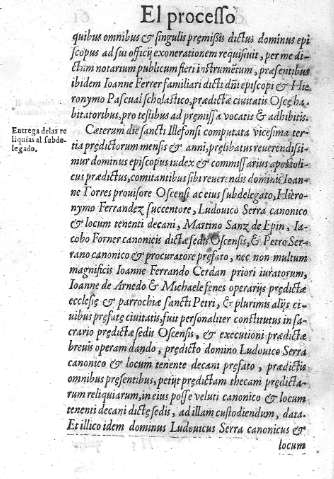 El processo
quibus omnibus & singulis premissis dictus dominus epi
scopus ad sui officij exonerationem requisiuit, per me di
ctum notarium publicum fieri instrumẽtum, presentibus
ibidem Ioanne Ferrer familiari dicti dñi episcopi & Hie
ronymo Pascual scholastico, prædictæ ciuitatis Oscẽ ha-
bitatoribus, pro testibus ad premissa vocatis & adhibitis.
Entrega delas re
liquias al subde-
legado.
Cæterum die sancti Illefonsi computata vicesima ter-
tia predictorum mensis & anni, prelibatus reuerendissi-
mus dominus episcopus iudex & commissarius apostoli-
cus prædictus, comitantibus sibi reuerẽdis dominis Ioan-
ne Torres prouisore Oscensi ac eius subdelegato, Hiero-
nymo Ferrandez succentore, Ludouico Serra canonico
& locum tenenti decani, Martino Sanz de Epin, Ia-
cobo Forner canonicis dictæ sedis Oscensis, & Petro Ser-
rano canonico & procuratore prefato, nec non multum
magnificis Ioanne Ferrando Cerdan priori iuratorum,
Ioanne de Arnedo & Michaele fenes operarijs prędictæ
ecclesię & parrochie sancti Petri, & plurimis alijs ci-
uibus prefatę ciuitatis, fuit personaliter constitutus in sa-
crario prædictæ sedis Oscensis, & executioni prædictæ
breuis operam dando, prędicto domino Ludouico Serra
canonico & locum tenente decani prefato, prædictis
omnibus presentibus, petijt prędictam thecam prędicta-
rum reliquiarum, in eius posse veluti canonico & locum
tenenti decani dictę sedis, ad illam custodiendum, data.
Et illico idem dominus Ludouicus Serra canonicus &
locum